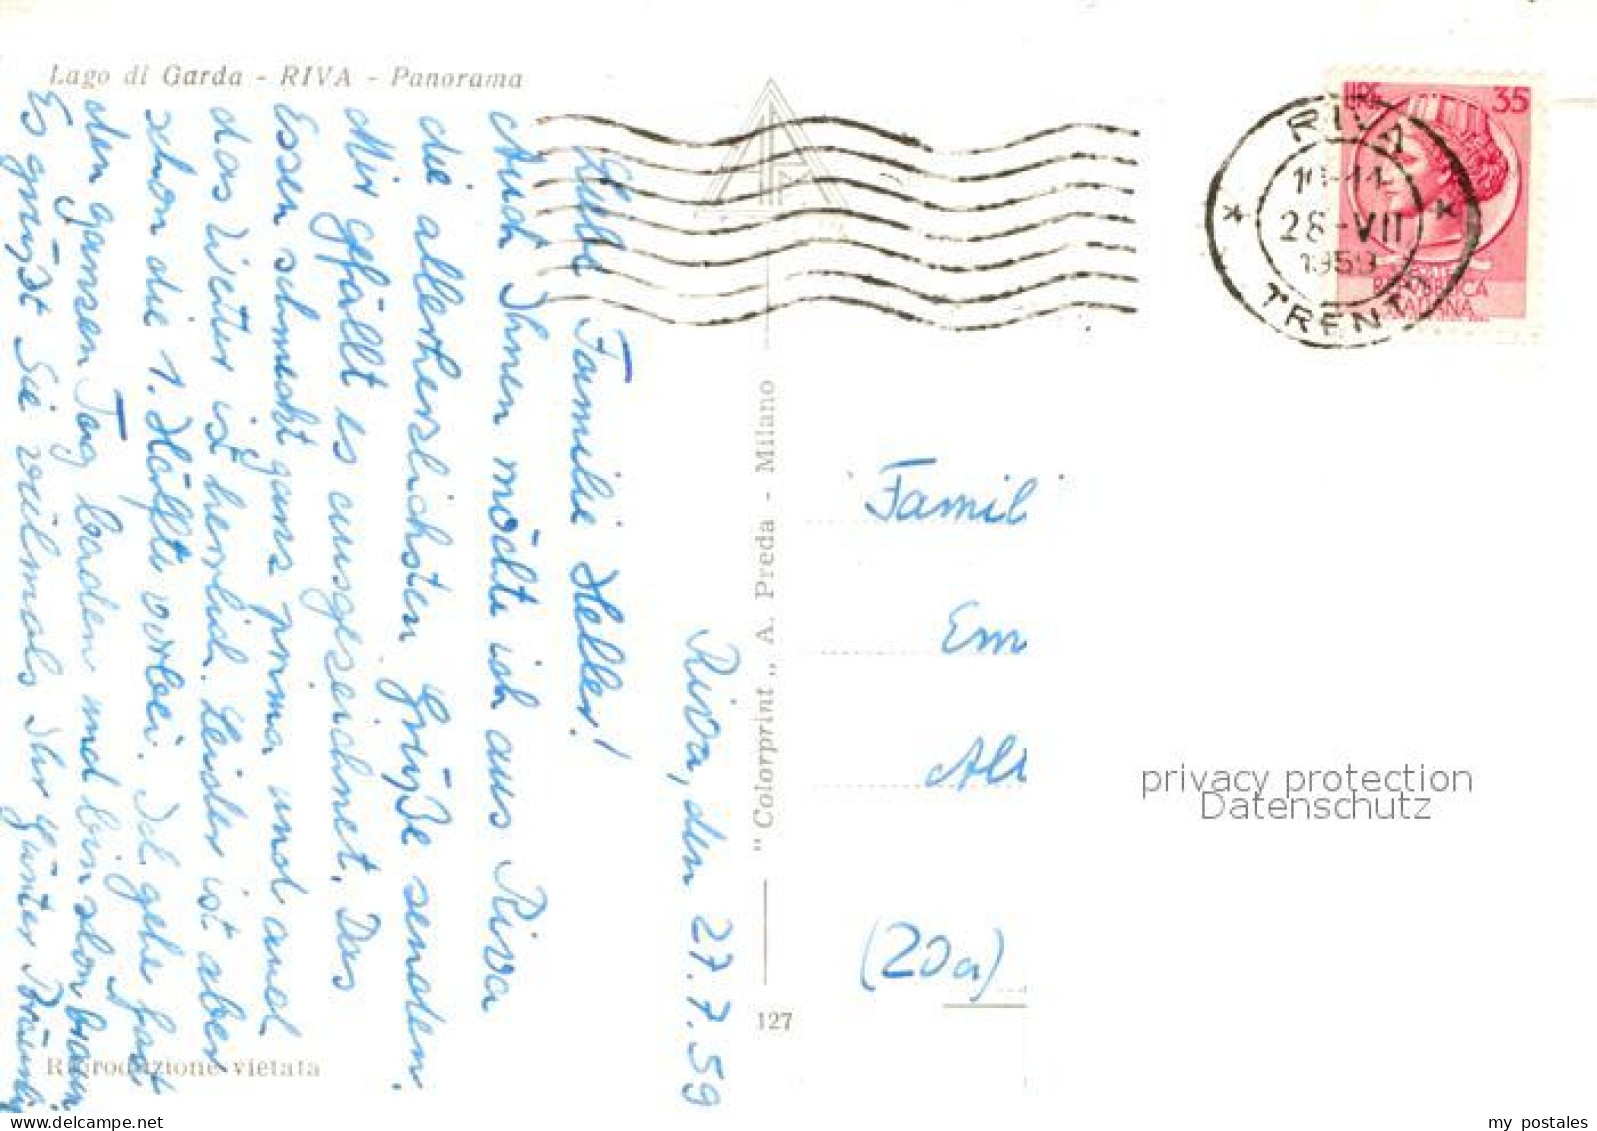 Lago di Garda - RIVA - Panorama
Riva, den 27.7.59
Liebe Familie Heller!
Auch Ihnen möchte ich aus Riva
die allerherzlichsten Grüße senden.
Mir gefällt es ausgezeichnet. Das
Essen schmeckt ganz prima und auch
das Wetter ist herrlich. Leider ist aber
schon die 1. Hälfte vorbei. Ich gehe fast
den ganzen Tag baden und bin schon braun
Es grüßt Sie vielmals Ihr Günter
Riproduzione vietata
"Colorprint" A. Preda - Milano
127
RIVA
10-11
28-VII
1959
TRENTO
LIRE 35
REPUBBLICA
ITALIANA
Famil
Em
Alt
(20a)
privacy protection
Datenschutz
my postales